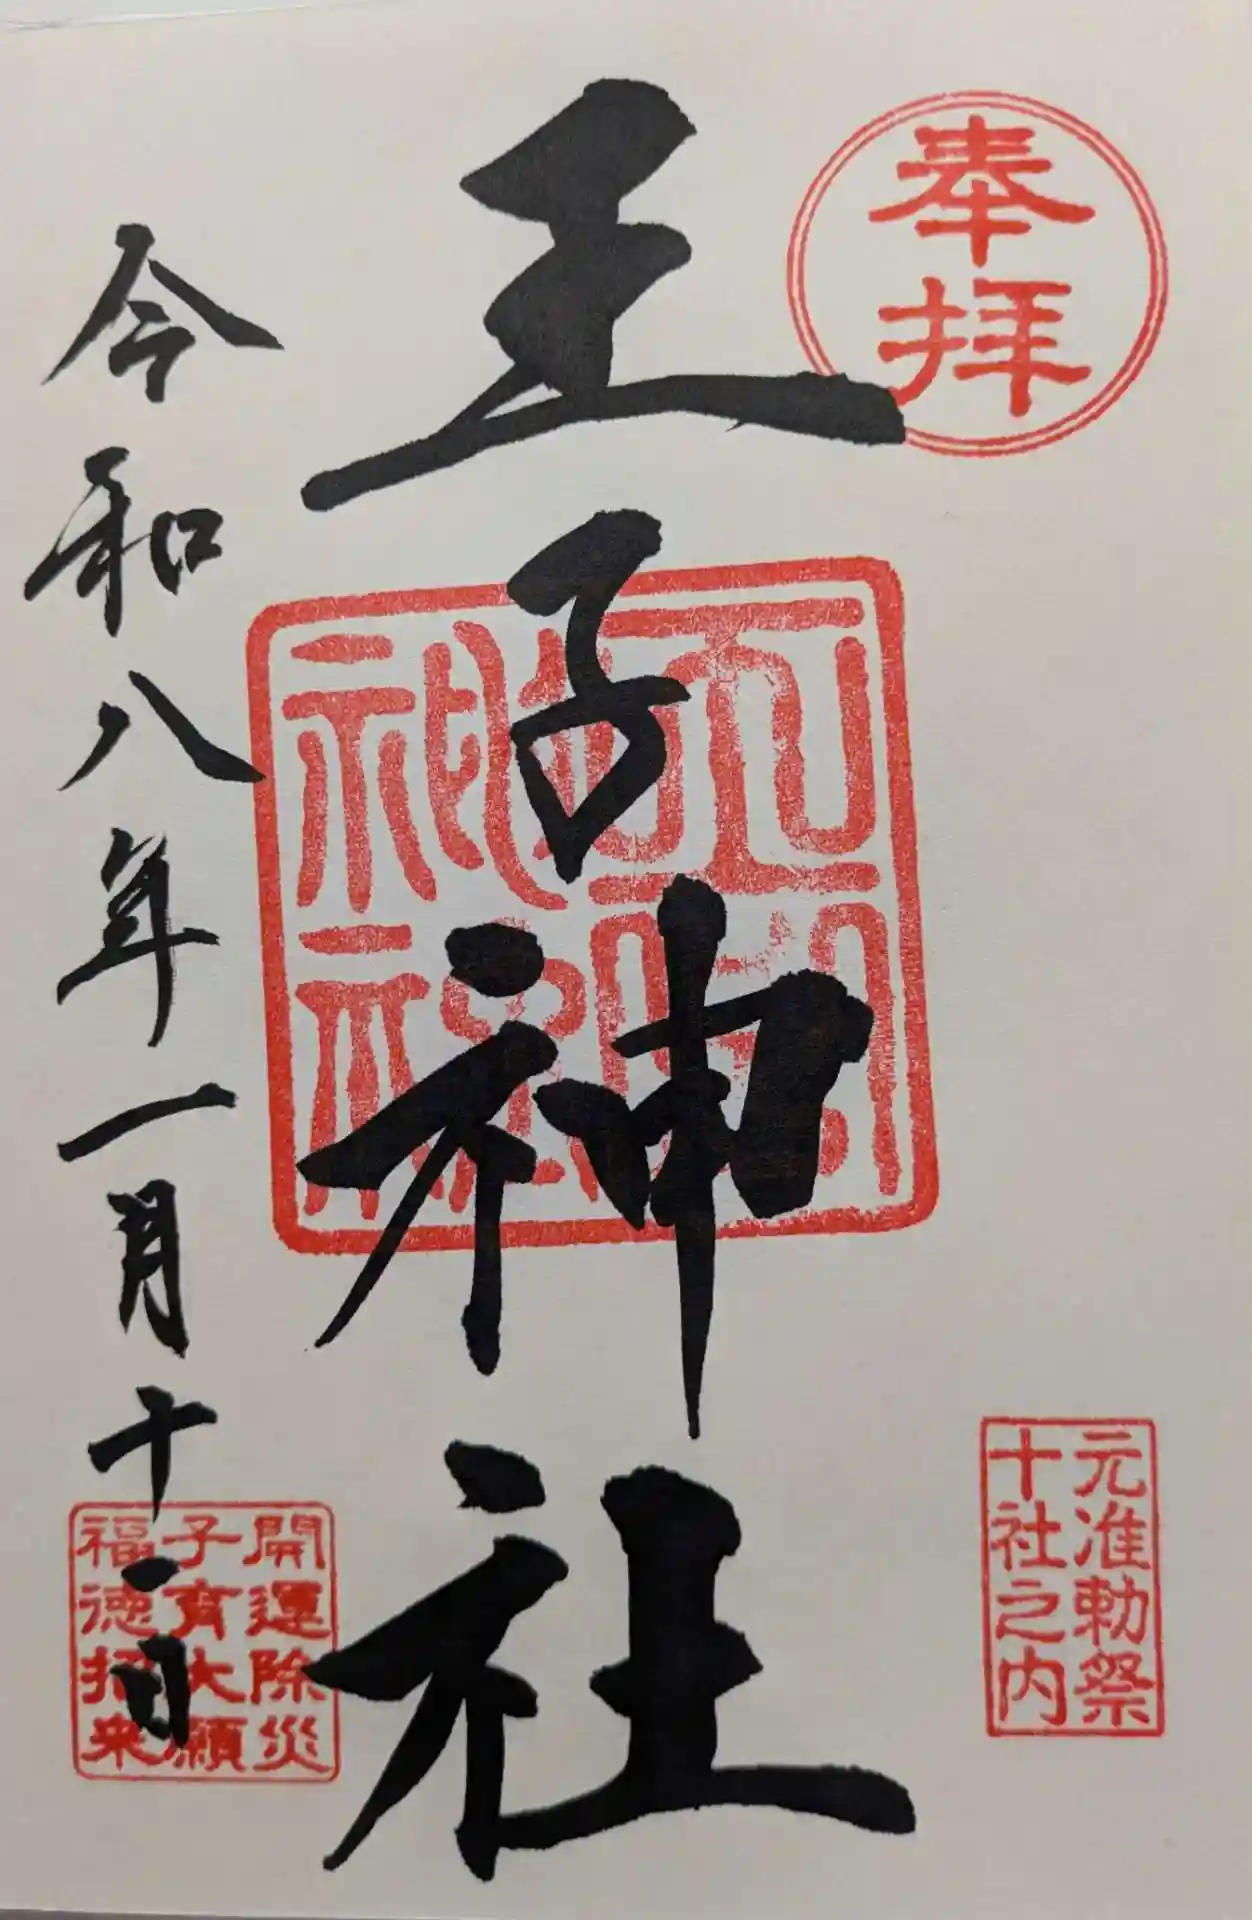 奉拝
元准勅祭
十社之内
王子神社
令和八年一月十一日
開運除災
子育大願
福徳招来